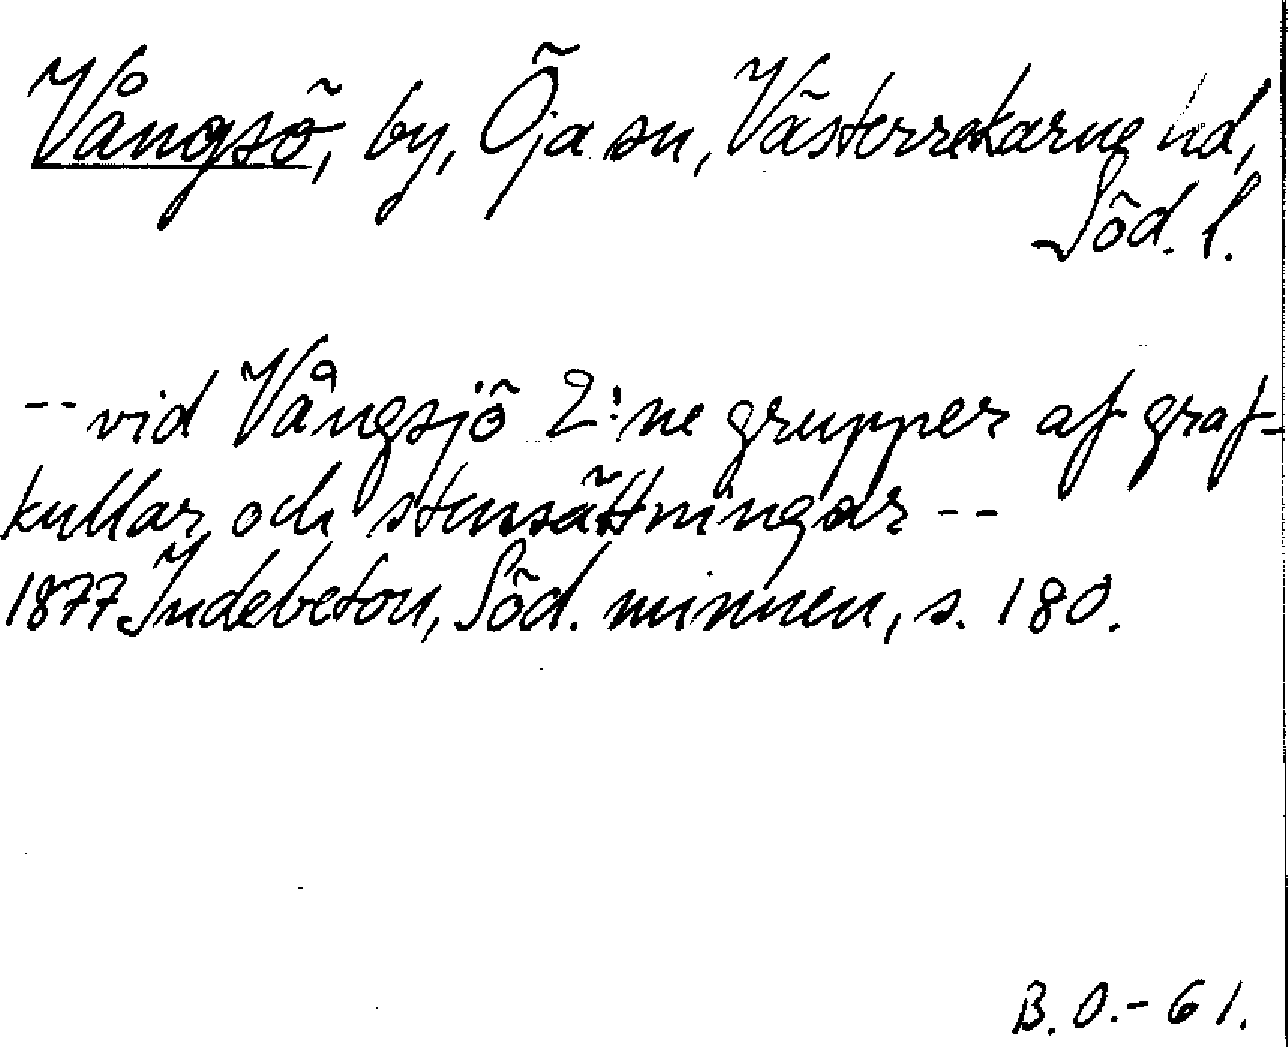 Vångsö, by, Öja sn, Västerrekarne hd,
Söd. l.
-- vid Vångsjö 2:ne grupper af graf-
kullar och stensättningar --
1877 Indebetou, Söd. minnen, s. 180.
B. O. - 61.